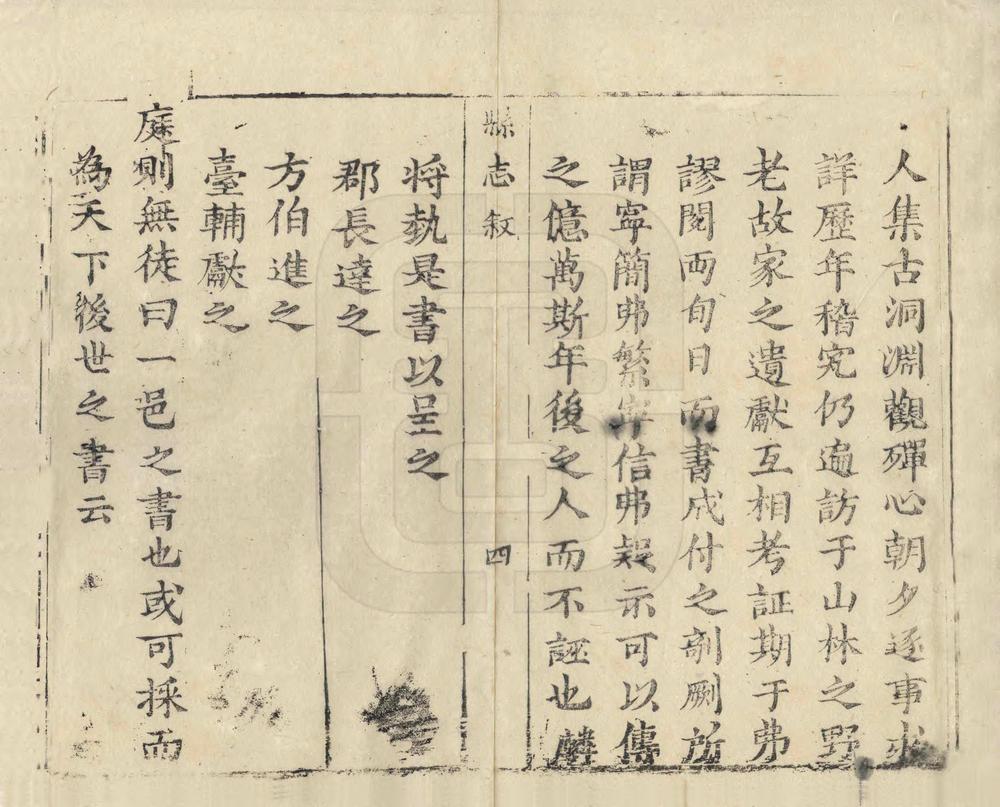 人集古洞淵觀殫心朝夕逐事求
詳歷年稽究仍遍訪于山林之野
老故家之遺獻互相考証期于弗
謬閱两旬日而書成付之剞劂所
謂寜簡弗繁寜信弗疑示可以傳
之億萬斯年後之人而不誣也麟
縣志敘 四
将執是書以呈之
郡長達之
方伯進之
臺輔獻之
庭則無徒曰一邑之書也或可採而
為天下後世之書云